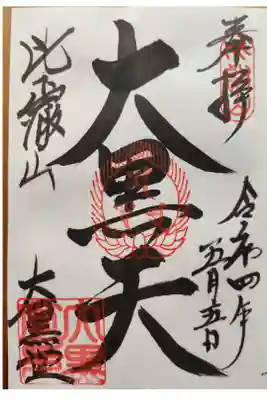 奉拝
令和四年
五月五日
大黒天
比叡山
大黒堂